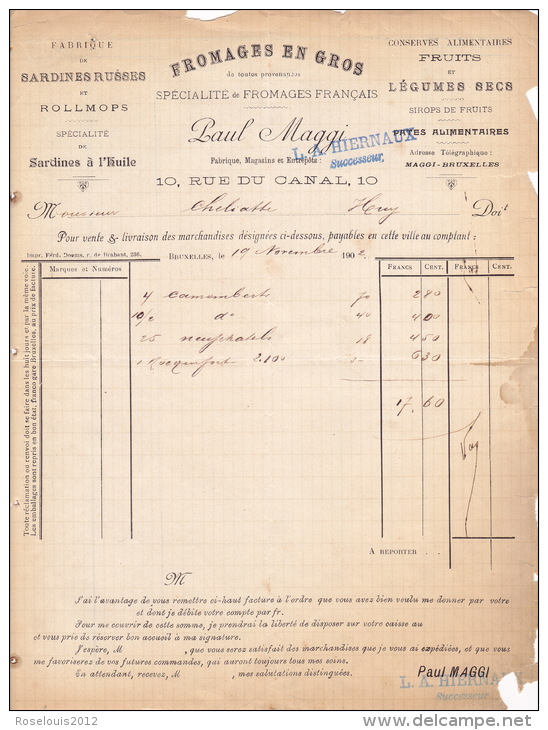 FABRIQUE
DE
SARDINES RUSSES
ET
ROLLMOPS
SPÉCIALITÉ
DE
Sardines à l'huile
FROMAGES EN GROS
de toutes provenances
SPÉCIALITÉ de FROMAGES FRANÇAIS
Paul Maggi
L. A. HIERNAUX
Successeur,
Fabrique, Magasins et Entrepôts:
10, RUE DU CANAL, 10
CONSERVES ALIMENTAIRES
FRUITS
ET
LÉGUMES SECS
SIROPS DE FRUITS
PATES ALIMENTAIRES
Adresse Télégraphique:
MAGGI-BRUXELLES
Monsieur Huy Doit
Pour vente & livraison des marchandises désignées ci-dessous, payables en cette ville au comptant:
Impr. Férd. r. de Brabant, 236.
BRUXELLES, le 19 Novembre 1902
Marques et Numéros FRANCS CENT. FRANCS CENT.
4 camemberts 70 2 80
10/2 do 40 4 00
25 neufchatels 18 4 50
1 Rocquefort 2.100 3- 6 30
17,60
Toute réclamation ou renvoi doit se faire dans les huit jours et par la même voie.
Les emballages sont repris en bon état, franco gare Bruxelles, au prix de facture.
A REPORTER
M
J'ai l'avantage de vous remettre ci-haut facture à l'ordre que vous avez bien voulu me donner par votre
et dont je débite votre compte par fr.
Pour me couvrir de cette somme, je prendrai la liberté de disposer sur votre caisse au
et vous prie de réserver bon accueil à ma signature.
J'espère, M , que vous serez satisfait des marchandises que je vous ai expédiées, et que vous
me favoriserez de vos futures commandes, qui auront toujours tous mes soins.
En attendant, recevez, M , mes salutations distinguées.
Paul MAGGI
L. A. HIERNAUX
Successeur
Roselouis2012
www.delcampe.net